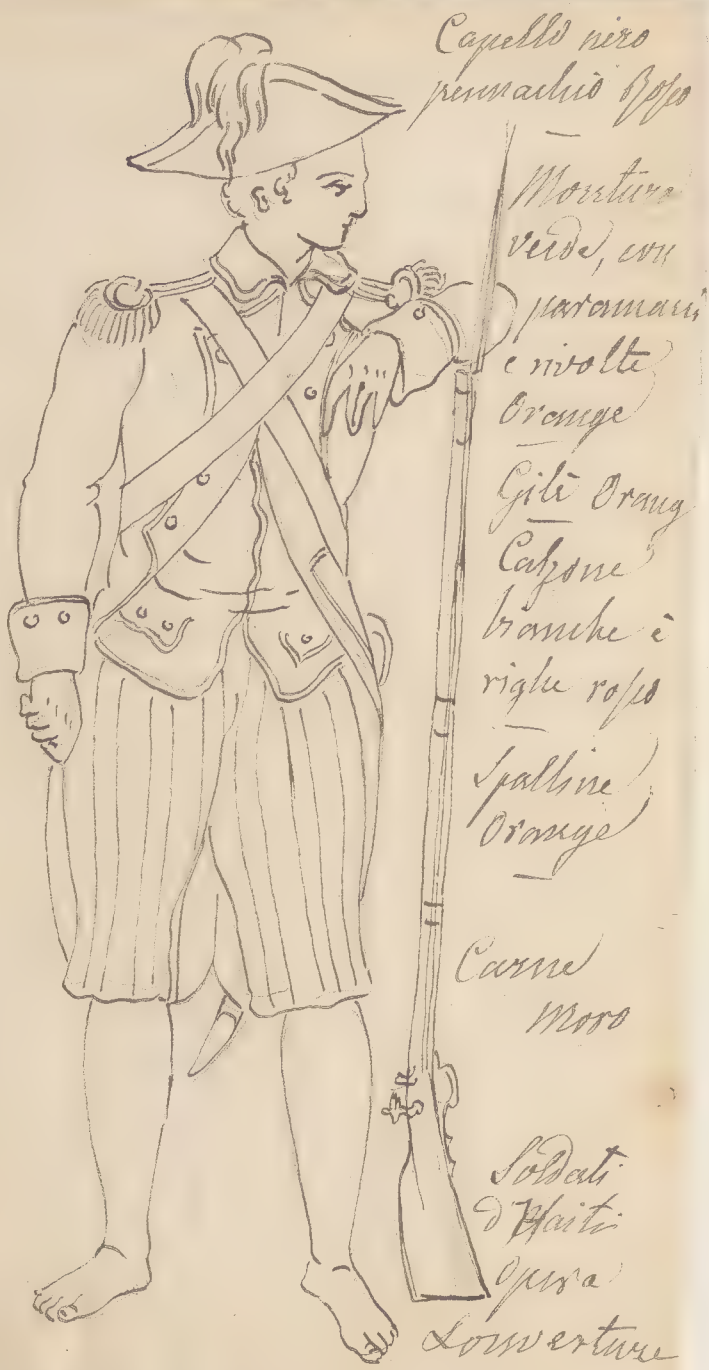 Capello nero
pennachio Roso
Montura
verde, con
paramani
e rivolte
Orange
Gilè Orang
Calzone
bianche è
righe roso
Spalline
Orange
Carne
Moro
Soldati
d'Haiti
Opera
Louverture